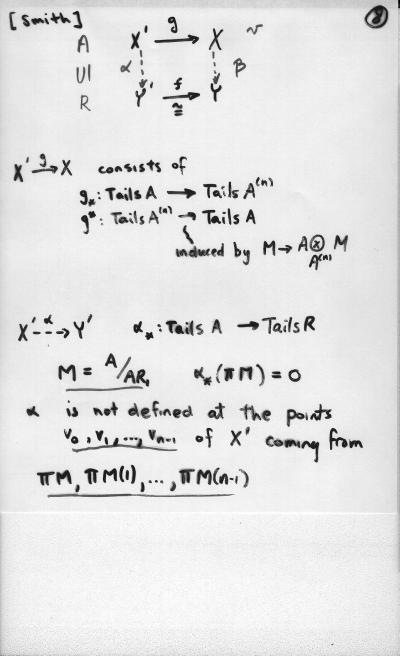 [Smith]
8
A X' g→ X ~
UI α β
R Y' f→ ≅ Y
X' g→ X consists of
g_*: Tails A → Tails A^(n)
g^*: Tails A^(n) → Tails A
induced by M → A ⊗_{A^(n)} M
X' --α--> Y' α_*: Tails A → Tails R
M = A/AR₁ α_*(πM) = 0
α is not defined at the points
v₀, v₁, ..., v_{n-1} of X' coming from
πM, πM(1), ..., πM(n-1)